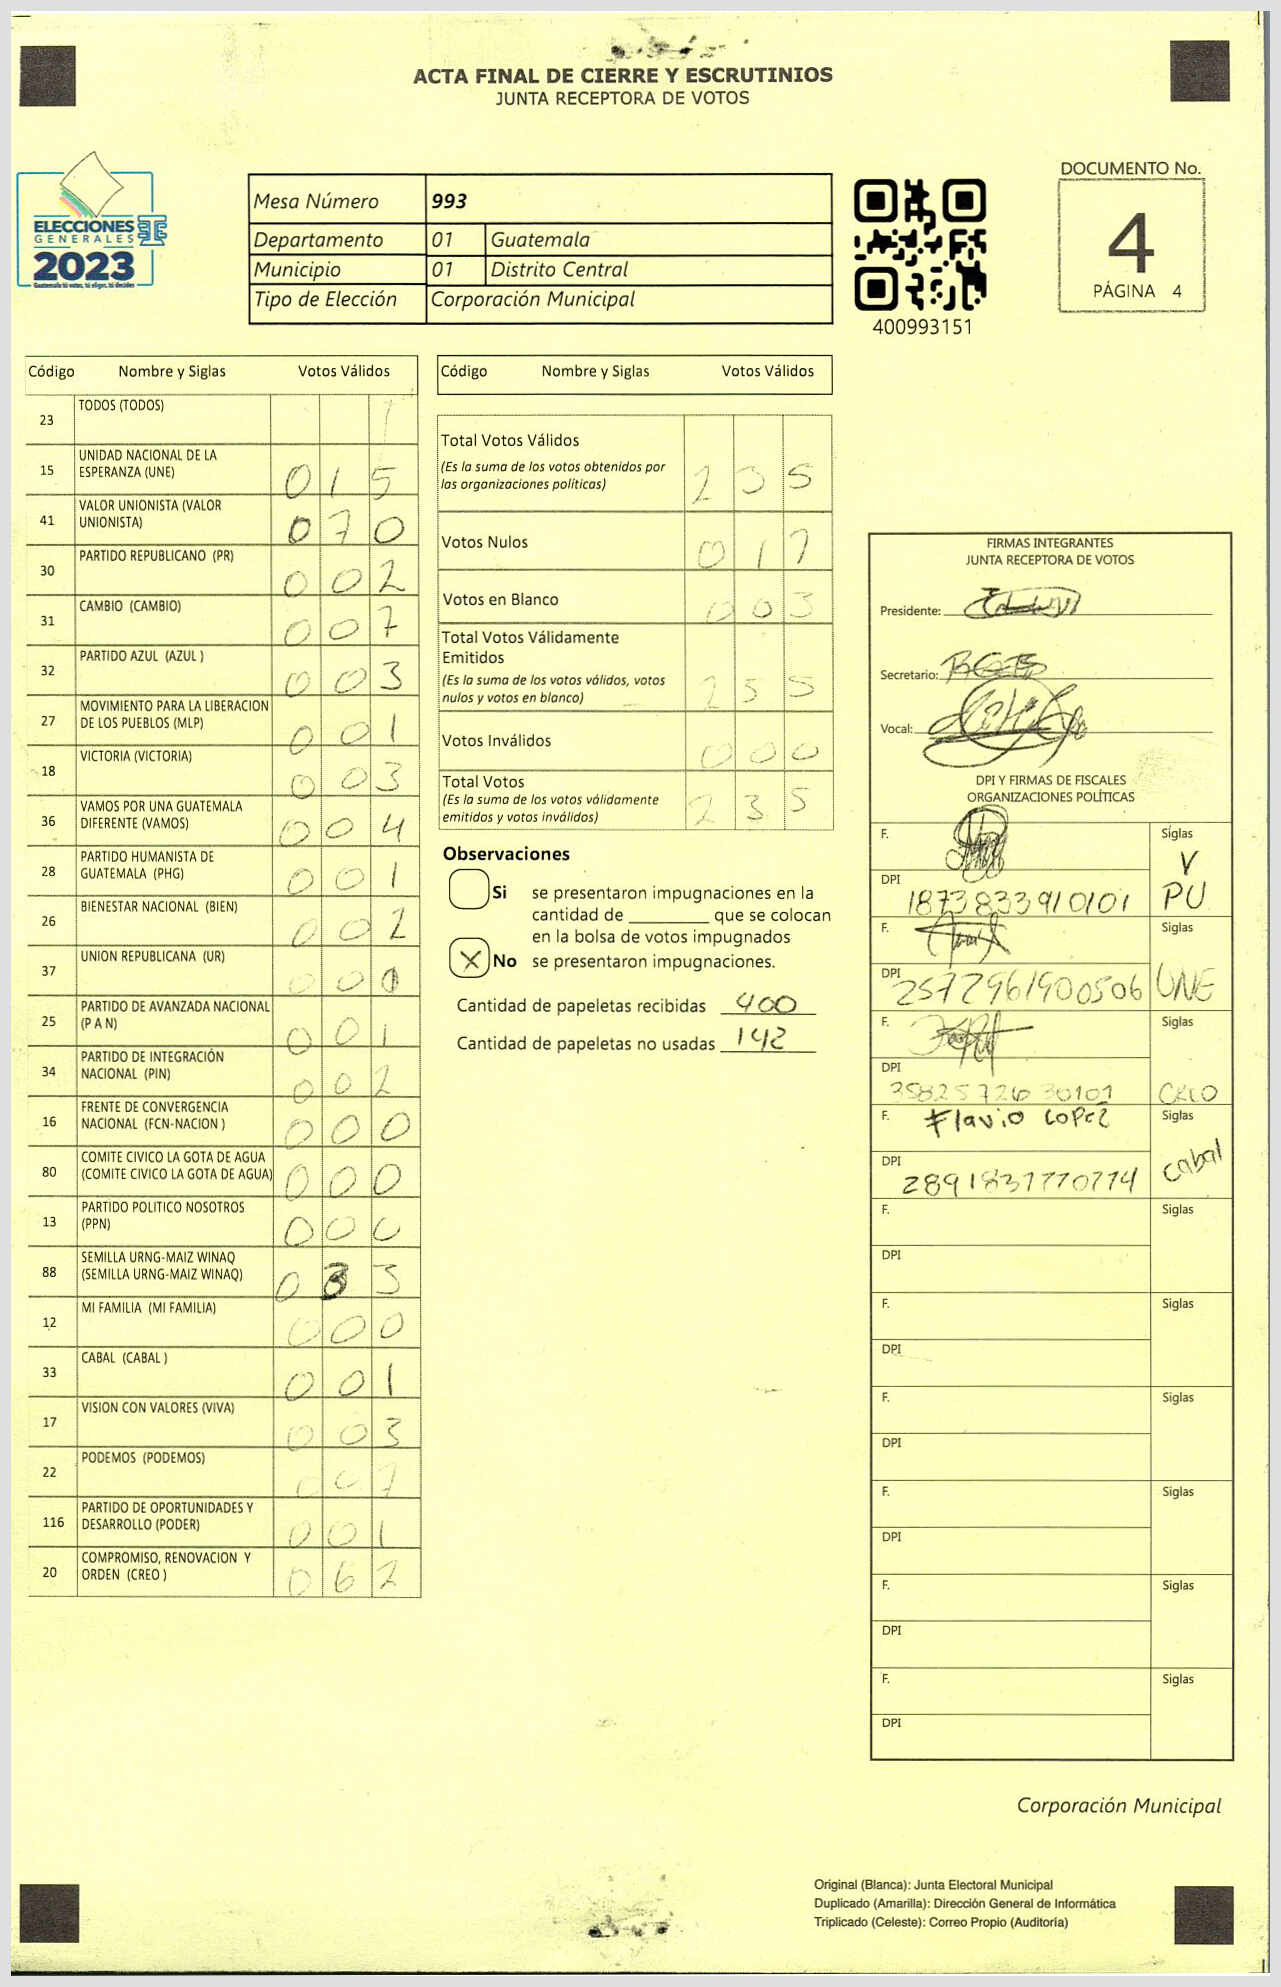 ACTA FINAL DE CIERRE Y ESCRUTINIOS
JUNTA RECEPTORA DE VOTOS
ELECCIONES
GENERALES
2023
Guatemala tú votas, tú eliges, tú decides
Mesa Número 993
Departamento 01 Guatemala
Municipio 01 Distrito Central
Tipo de Elección Corporación Municipal
400993151
DOCUMENTO No.
4
PÁGINA 4
Código Nombre y Siglas Votos Válidos
23 TODOS (TODOS) 1
15 UNIDAD NACIONAL DE LA
ESPERANZA (UNE) 0 1 5
41 VALOR UNIONISTA (VALOR
UNIONISTA) 0 7 0
30 PARTIDO REPUBLICANO (PR) 0 0 2
31 CAMBIO (CAMBIO) 0 0 7
32 PARTIDO AZUL (AZUL ) 0 0 3
27 MOVIMIENTO PARA LA LIBERACION
DE LOS PUEBLOS (MLP) 0 0 1
18 VICTORIA (VICTORIA) 0 0 3
36 VAMOS POR UNA GUATEMALA
DIFERENTE (VAMOS) 0 0 4
28 PARTIDO HUMANISTA DE
GUATEMALA (PHG) 0 0 1
26 BIENESTAR NACIONAL (BIEN) 0 0 2
37 UNION REPUBLICANA (UR) 0 0
25 PARTIDO DE AVANZADA NACIONAL
(P A N) 0 0 1
34 PARTIDO DE INTEGRACIÓN
NACIONAL (PIN) 0 0 2
16 FRENTE DE CONVERGENCIA
NACIONAL (FCN-NACION ) 0 0 0
80 COMITE CIVICO LA GOTA DE AGUA
(COMITE CIVICO LA GOTA DE AGUA) 0 0 0
13 PARTIDO POLITICO NOSOTROS
(PPN) 0 0 0
88 SEMILLA URNG-MAIZ WINAQ
(SEMILLA URNG-MAIZ WINAQ) 0 3 3
12 MI FAMILIA (MI FAMILIA) 0 0 0
33 CABAL (CABAL ) 0 0 1
17 VISION CON VALORES (VIVA) 0 0 3
22 PODEMOS (PODEMOS) 0 0 7
116 PARTIDO DE OPORTUNIDADES Y
DESARROLLO (PODER) 0 0 1
20 COMPROMISO, RENOVACION Y
ORDEN (CREO ) 0 6 2
Código Nombre y Siglas Votos Válidos
Total Votos Válidos
(Es la suma de los votos obtenidos por
las organizaciones políticas) 2 3 5
Votos Nulos 0 1 7
Votos en Blanco 0 0 3
Total Votos Válidamente
Emitidos
(Es la suma de los votos válidos, votos
nulos y votos en blanco) 2 5 5
Votos Inválidos 0 0 0
Total Votos
(Es la suma de los votos válidamente
emitidos y votos inválidos) 2 3 5
Observaciones
Si se presentaron impugnaciones en la
cantidad de ________ que se colocan
en la bolsa de votos impugnados
X No se presentaron impugnaciones.
Cantidad de papeletas recibidas 400
Cantidad de papeletas no usadas 142
FIRMAS INTEGRANTES
JUNTA RECEPTORA DE VOTOS
Presidente:
Secretario:
Vocal:
DPI Y FIRMAS DE FISCALES
ORGANIZACIONES POLÍTICAS
F. Siglas
V
DPI 1873833910101 PU
F. Siglas
DPI 2572961900506 UNE
F. Siglas
DPI 3582572630101 CREO
F. Flavio Lopez Siglas
DPI 2891831770774 cabal
F. Siglas
DPI
F. Siglas
DPI
F. Siglas
DPI
F. Siglas
DPI
F. Siglas
DPI
F. Siglas
DPI
Corporación Municipal
Original (Blanca): Junta Electoral Municipal
Duplicado (Amarilla): Dirección General de Informática
Triplicado (Celeste): Correo Propio (Auditoría)